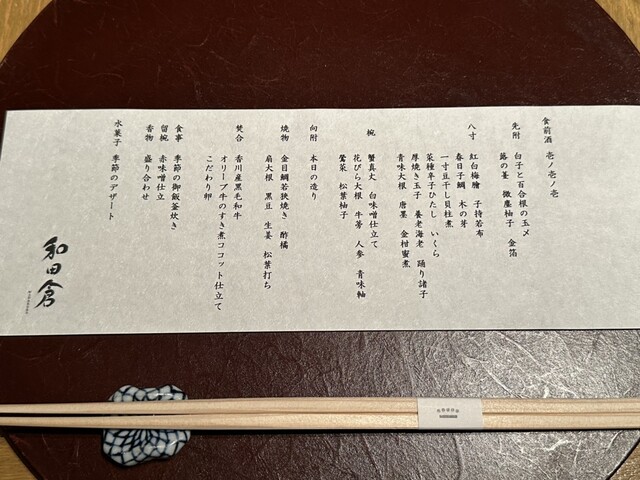 食前酒　壱ノ壱ノ壱
先附　白子と百合根の玉〆
蕗の薹　微塵柚子　金箔
八寸　紅白梅膾　子持若布
春日子鯛　木の芽
一寸豆干し貝柱煮
菜種辛子ひたし　いくら
厚焼き玉子　養老海老　踊り諸子
青味大根　唐墨　金柑蜜煮
椀　蟹真丈　白味噌仕立て
花びら大根　牛蒡　人参　青味軸
鶯菜　松葉柚子
向附　本日の造り
焼物　金目鯛若狭焼き　酢橘
扇大根　黒豆　生姜　松葉打ち
焚合　香川産黒毛和牛
オリーブ牛のすき煮ココット仕立て
こだわり卵
食事　季節の御飯釜炊き
留椀　赤味噌仕立
香物　盛り合わせ
水菓子　季節のデザート
和田倉